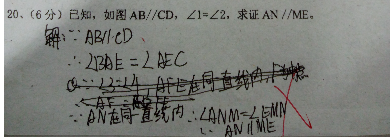 20、(6分) 已知，如图 AB//CD，∠1=∠2，求证 AN//ME。
解：∵AB//CD
∴∠BAE=∠AEC
∵AN在同一直线内 ∴∠ANM=∠EMN
∴ AN//ME